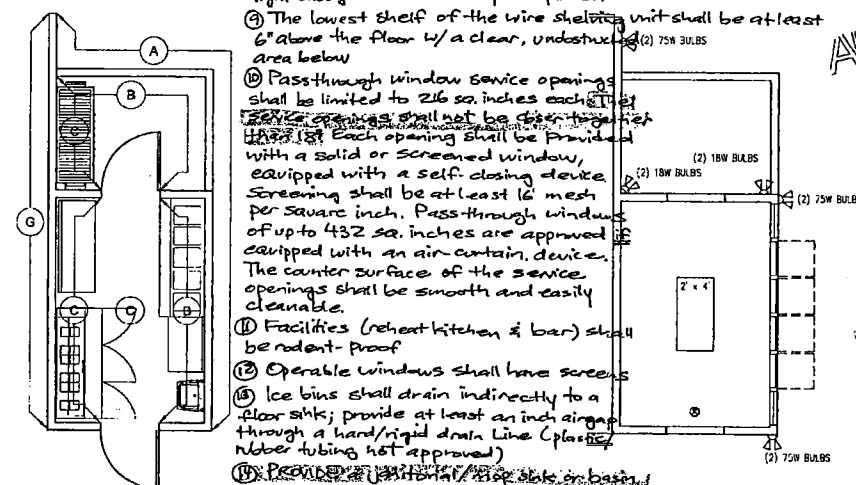 ⑨ The lowest shelf of the wire shelving unit shall be at least
6" above the floor w/ a clear, undostructed
area below
⑩ Passthrough window service openings
shall be limited to 216 sq. inches each. The
service openings shall not be closer together
than 18". Each opening shall be provided
with a solid or screened window,
equipped with a self-closing device.
Screening shall be at least 16 mesh
per square inch. Pass-through windows
of up to 432 sq. inches are approved
equipped with an air-curtain device.
The counter surface of the service
openings shall be smooth and easily
cleanable.
⑪ Facilities (reheat kitchen & bar) shall
be rodent-proof
⑫ Operable windows shall have screens
⑬ Ice bins shall drain indirectly to a
floor sink; provide at least an inch airgap
through a hard/rigid drain line (plastic/
rubber tubing not approved)
⑭ Provide a janitorial/mop sink or basin
A
B
C
G
C
C
B
(2) 75W BULBS
(2) 18W BULBS
(2) 18W BULBS
(2) 75W BULB
2' x 4'
(2) 75W BULBS